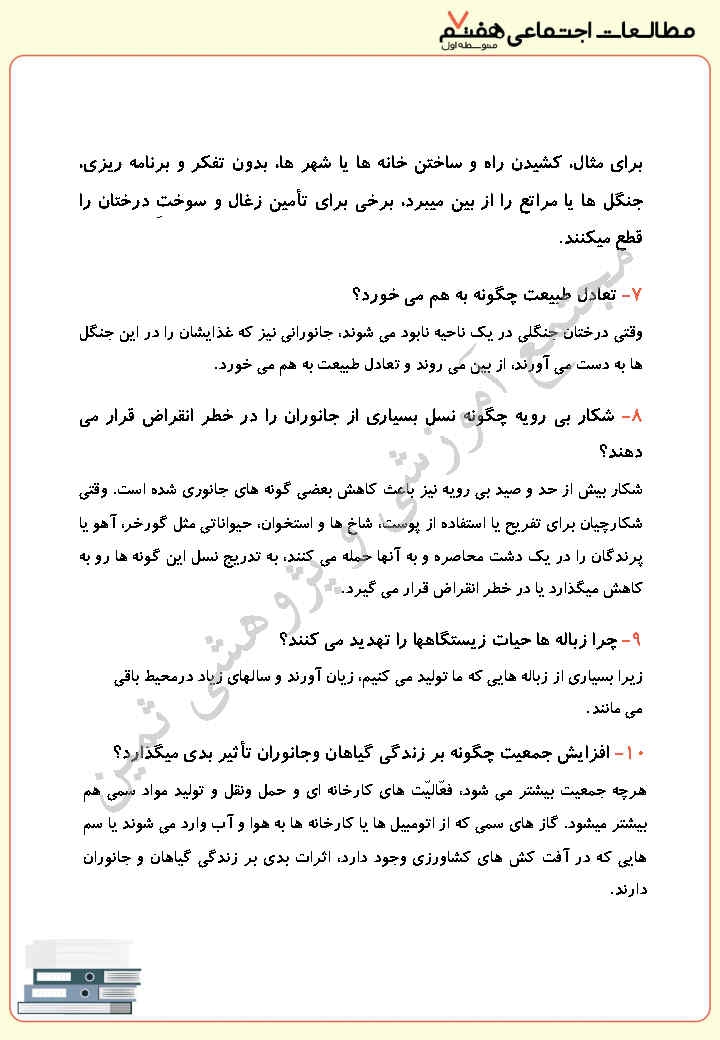 مطالعات اجتماعی هفتم ۷
متوسطه اول
برای مثال، کشیدن راه و ساختن خانه ها یا شهر ها، بدون تفکر و برنامه ریزی،
جنگل ها یا مراتع را از بین میبرد، برخی برای تأمین زغال و سوختِ درختان را
قطع میکنند.
۷- تعادل طبیعت چگونه به هم می خورد؟
وقتی درختان جنگلی در یک ناحیه نابود می شوند، جانورانی نیز که غذایشان را در این جنگل
ها به دست می آورند، از بین می روند و تعادل طبیعت به هم می خورد.
۸- شکار بی رویه چگونه نسل بسیاری از جانوران را در خطر انقراض قرار می
دهند؟
شکار بیش از حد و صید بی رویه نیز باعث کاهش بعضی گونه های جانوری شده است. وقتی
شکارچیان برای تفریح یا استفاده از پوست، شاخ ها و استخوان، حیواناتی مثل گورخر، آهو یا
پرندگان را در یک دشت محاصره و به آنها حمله می کنند، به تدریج نسل این گونه ها رو به
کاهش میگذارد یا در خطر انقراض قرار می گیرد.
۹- چرا زباله ها حیات زیستگاهها را تهدید می کنند؟
زیرا بسیاری از زباله هایی که ما تولید می کنیم، زیان آورند و سالهای زیاد درمحیط باقی
می مانند.
۱۰- افزایش جمعیت چگونه بر زندگی گیاهان وجانوران تأثیر بدی میگذارد؟
هرچه جمعیت بیشتر می شود، فعّالیّت های کارخانه ای و حمل ونقل و تولید مواد سمی هم
بیشتر میشود. گاز های سمی که از اتومبیل ها یا کارخانه ها به هوا و آب وارد می شوند یا سم
هایی که در آفت کش های کشاورزی وجود دارد، اثرات بدی بر زندگی گیاهان و جانوران
دارند.
مجتمع آموزشی و پژوهشی ثمین